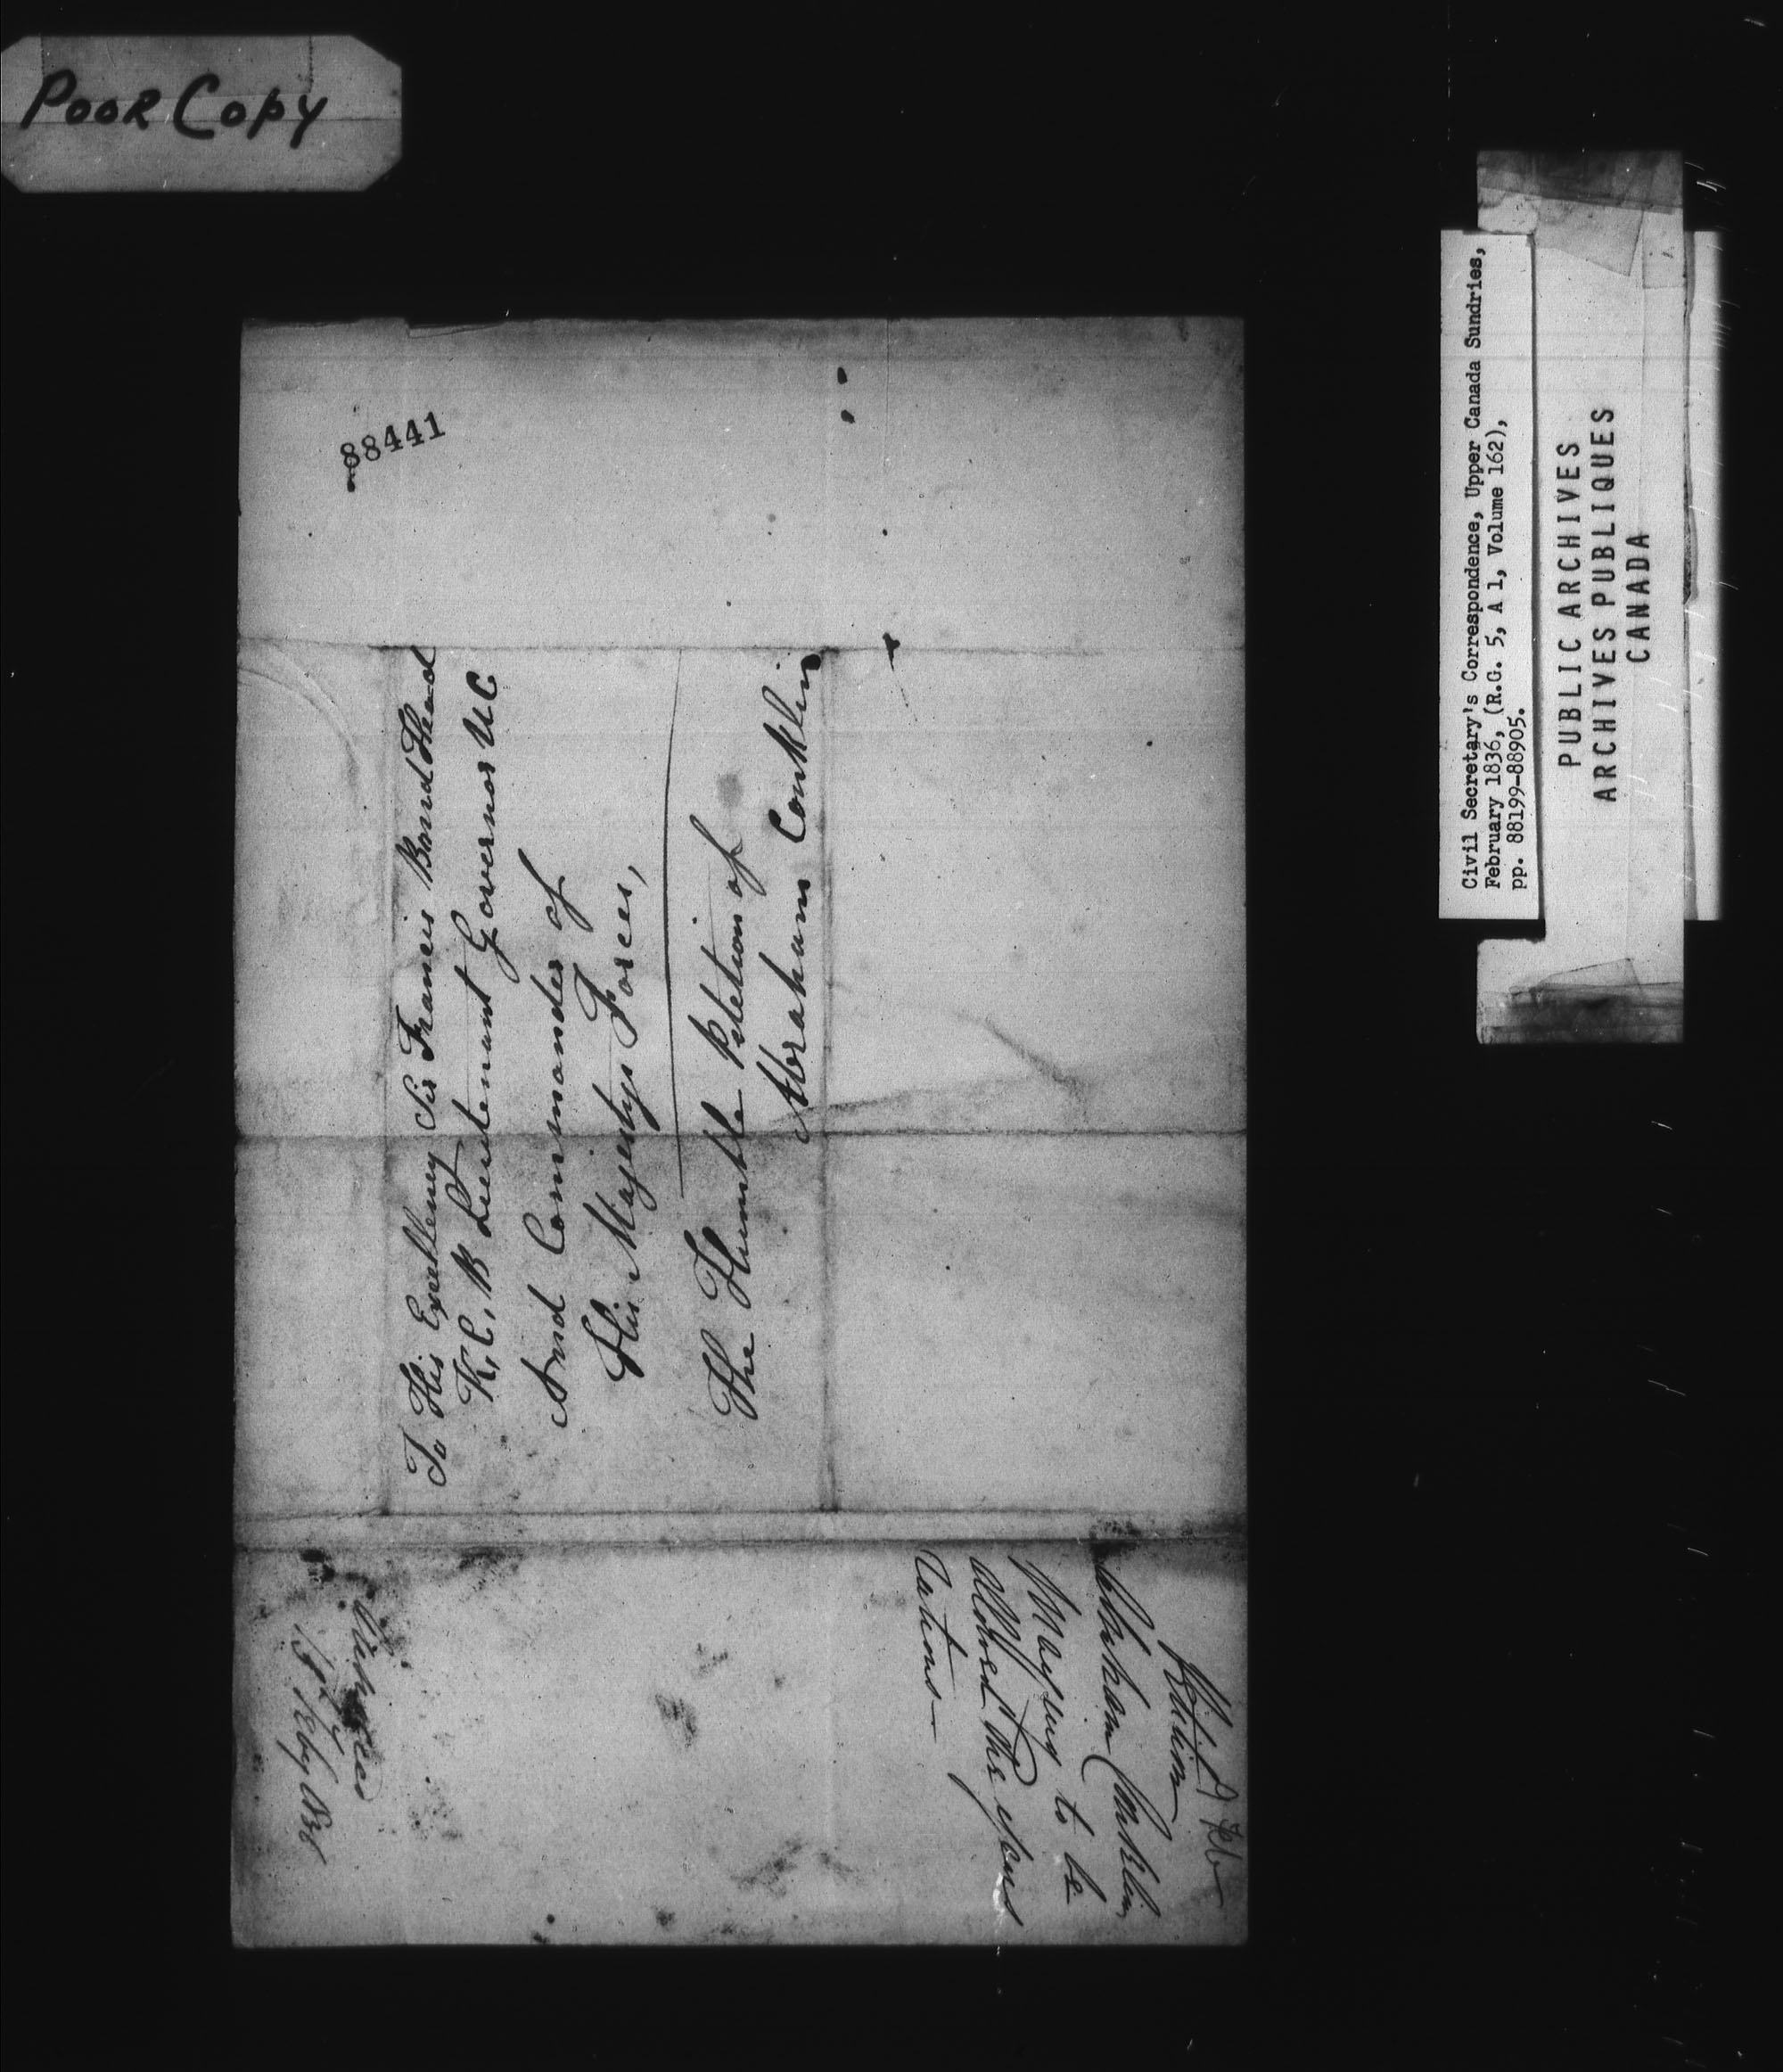 POOR COPY
88441
To His Excellency Sir Francis Bond Head
K, C, B Lieutenant Governor U C
And Commander of
His Majestys Forces,
The Humble Petetion of
Abraham Conklin
Feb
Petition
Abraham Conklin
to be
allowed the
1836
Civil Secretary's Correspondence, Upper Canada Sundries,
February 1836, (R.G. 5, A 1, Volume 162),
pp. 88199-88905.
PUBLIC ARCHIVES
ARCHIVES PUBLIQUES
CANADA